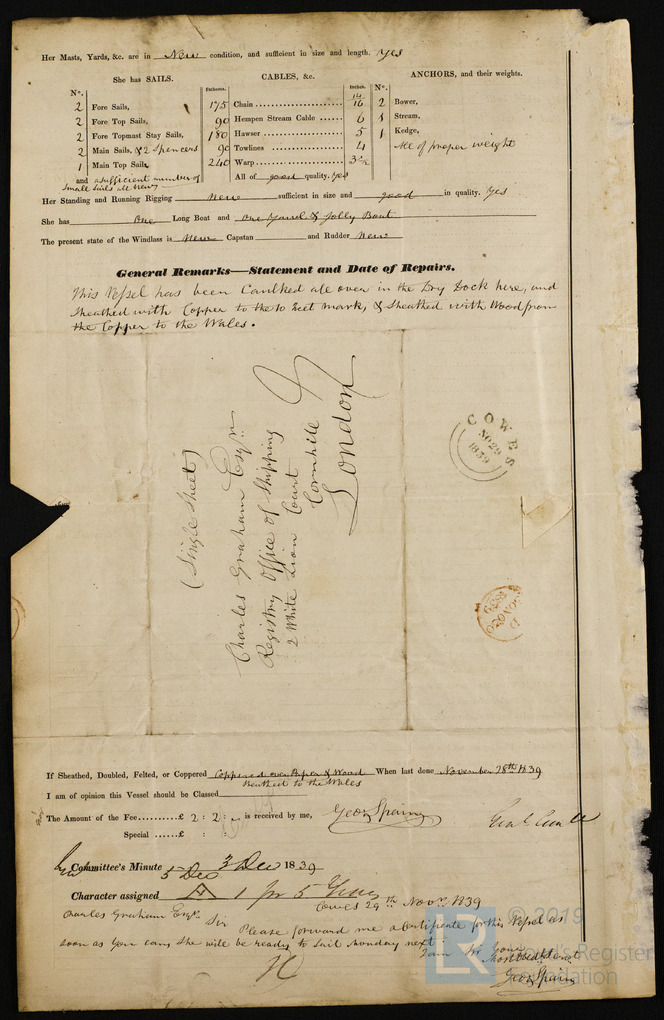 Her Masts, Yards, &c. are in New condition, and sufficient in size and length. Yes
She has SAILS.
CABLES, &c.
ANCHORS, and their weights.
N°.
Fathoms.
Inches.
N°.
2 Fore Sails,
2 Fore Top Sails,
2 Fore Topmast Stay Sails,
2 Main Sails, & 2 Spencers
1 Main Top Sails
and a sufficient number of
Small Sails all New
175 Chain 14/16
90 Hempen Stream Cable 6
180 Hawser 5
90 Towlines 4
240 Warp 3½
All of good quality. Yes
2 Bower,
1 Stream,
1 Kedge,
All of proper weight
Her Standing and Running Rigging New sufficient in size and good in quality. Yes
She has One Long Boat and One Yawl & Jolly Boat
The present state of the Windlass is New Capstan and Rudder New
General Remarks—Statement and Date of Repairs.
This Vessel has been Caulked all over in the Dry Dock here, and
Sheathed with Copper to the 10 feet mark, & Sheathed with Wood from
the Copper to the Wales.
(Single Sheet)
Charles Graham Esqr
Registry Office of Shipping
2 White Lion Court
Cornhill
London
COWES
NO 29
1839
D
30 NO 30
1839
If Sheathed, Doubled, Felted, or Coppered Coppered over Paper & Wood When last done November 28th 1839
Sheathed to the Wales
I am of opinion this Vessel should be Classed
The Amount of the Fee £ 2 : 2 : is received by me, Geo Spain
Special £ : :
Committee's Minute 3 Dec 1839
5 Dec
Character assigned A 1 for 5 Years
Cowes 29th Novr 1839
Charles Graham Esqr.
Sir Please forward me a Certificate for this Vessel as
soon as you can, she will be ready to Sail Monday next
I am Sir Your
Most Obedt Servt
Geo Spain
© 2019
LR
Lloyd's Register
Foundation